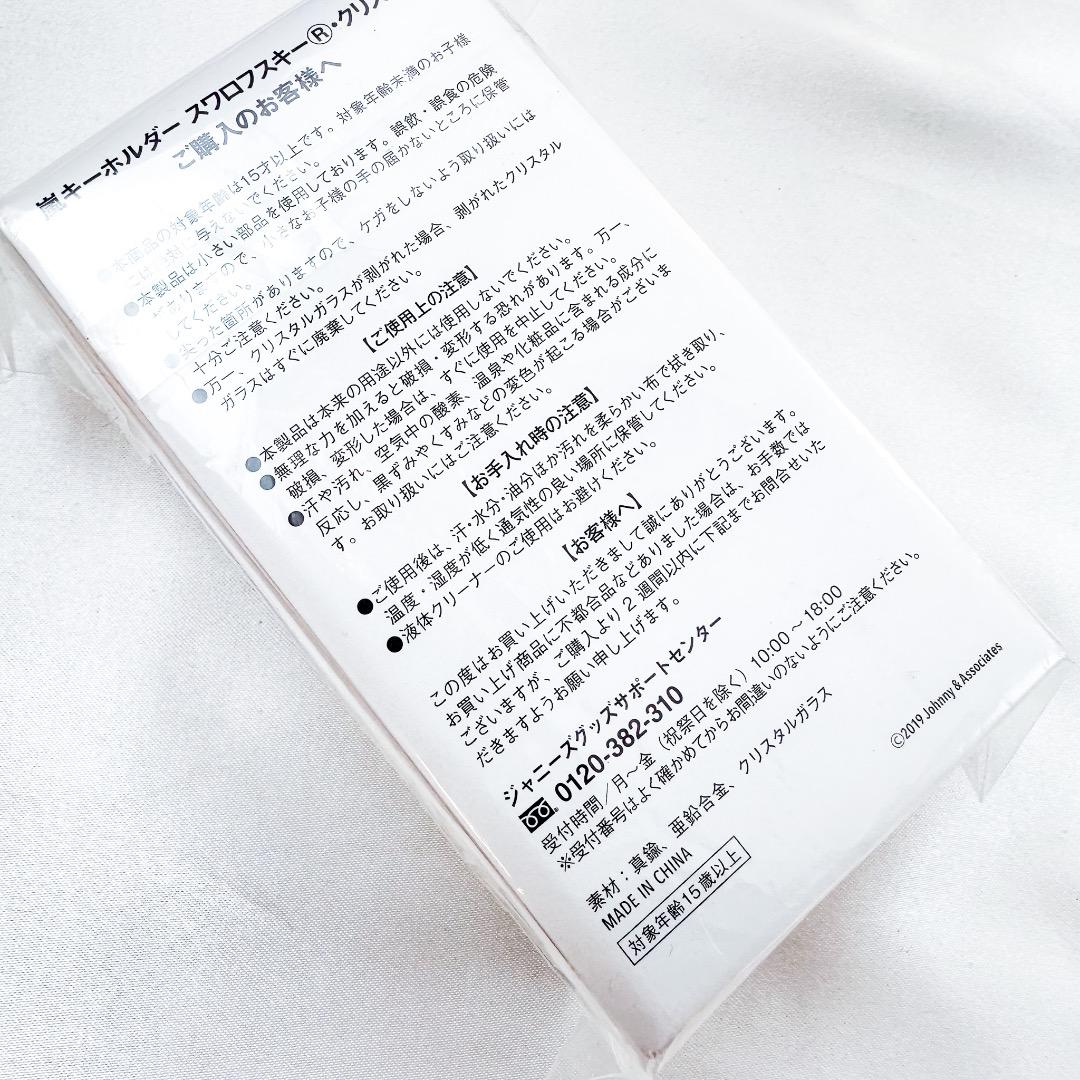 嵐キーホルダー スワロフスキー®・クリス
ご購入のお客様へ
●本商品の対象年齢は15才以上です。対象年齢未満のお子様
には絶対に与えないでください。
●本製品は小さい部品を使用しております。誤飲・誤食の危険
がありますので、小さなお子様の手の届かないところに保管
してください。
●尖った箇所がありますので、ケガをしないよう取り扱いには
十分ご注意ください。
●万一、クリスタルガラスが剥がれた場合、剥がれたクリスタル
ガラスはすぐに廃棄してください。
【ご使用上の注意】
●本製品は本来の用途以外には使用しないでください。
●無理な力を加えると破損・変形する恐れがあります。万一、
破損、変形した場合は、すぐに使用を中止してください。
●汗や汚れ、空気中の酸素、温泉や化粧品に含まれる成分に
反応し、黒ずみやくすみなどの変色が起こる場合がございま
す。お取り扱いにはご注意ください。
【お手入れ時の注意】
●ご使用後は、汗・水分・油分ほか汚れを柔らかい布で拭き取り、
温度・湿度が低く通気性の良い場所に保管してください。
●液体クリーナーのご使用はお避けください。
【お客様へ】
この度はお買い上げいただきまして誠にありがとうございます。
お買い上げ商品に不都合品などありました場合は、お手数では
ございますが、ご購入より2週間以内に下記までお問合せいた
だきますようお願い申し上げます。
ジャニーズグッズサポートセンター
0120-382-310
受付時間/月〜金(祝祭日を除く)10:00〜18:00
※受付番号はよく確かめてからお間違いのないようにご注意ください。
素材:真鍮、亜鉛合金、クリスタルガラス
MADE IN CHINA
対象年齢15歳以上
©2019 Johnny & Associates